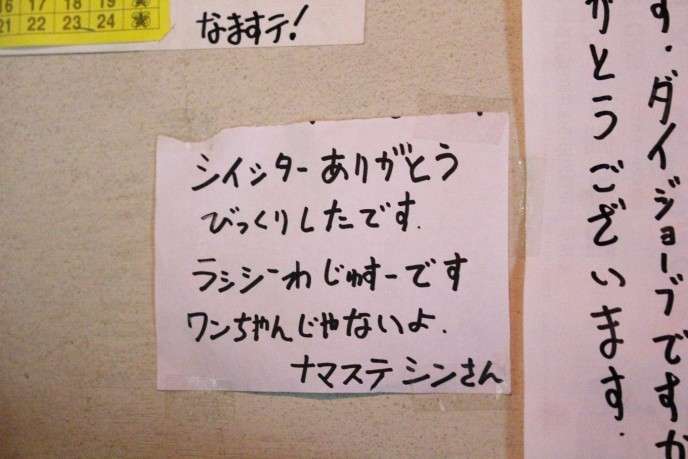 16 17 18 19
21 22 23 24
なますテ!
シイッターありがとう
びっくりしたです.
ラッシーわじゅすーです
ワンちゃんじゃないよ.
ナマステ シンさん
す・ダイジョーブですか
がとうございます.